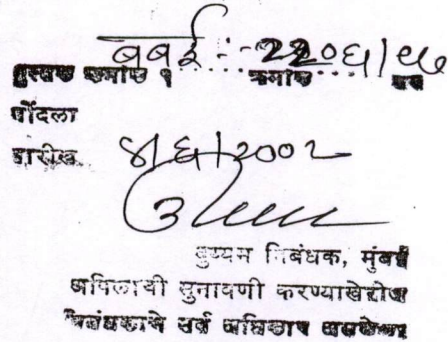 बबई :- २२०६/९७
पुस्तक क्रमांक १ क्रमांक वर
नोंदला
तारीख ४/६/२००२
दुय्यम निबंधक, मुंबई
अपिलाची सुनावणी करण्याखेरीज
निबंधकाचे सर्व अधिकार असलेला